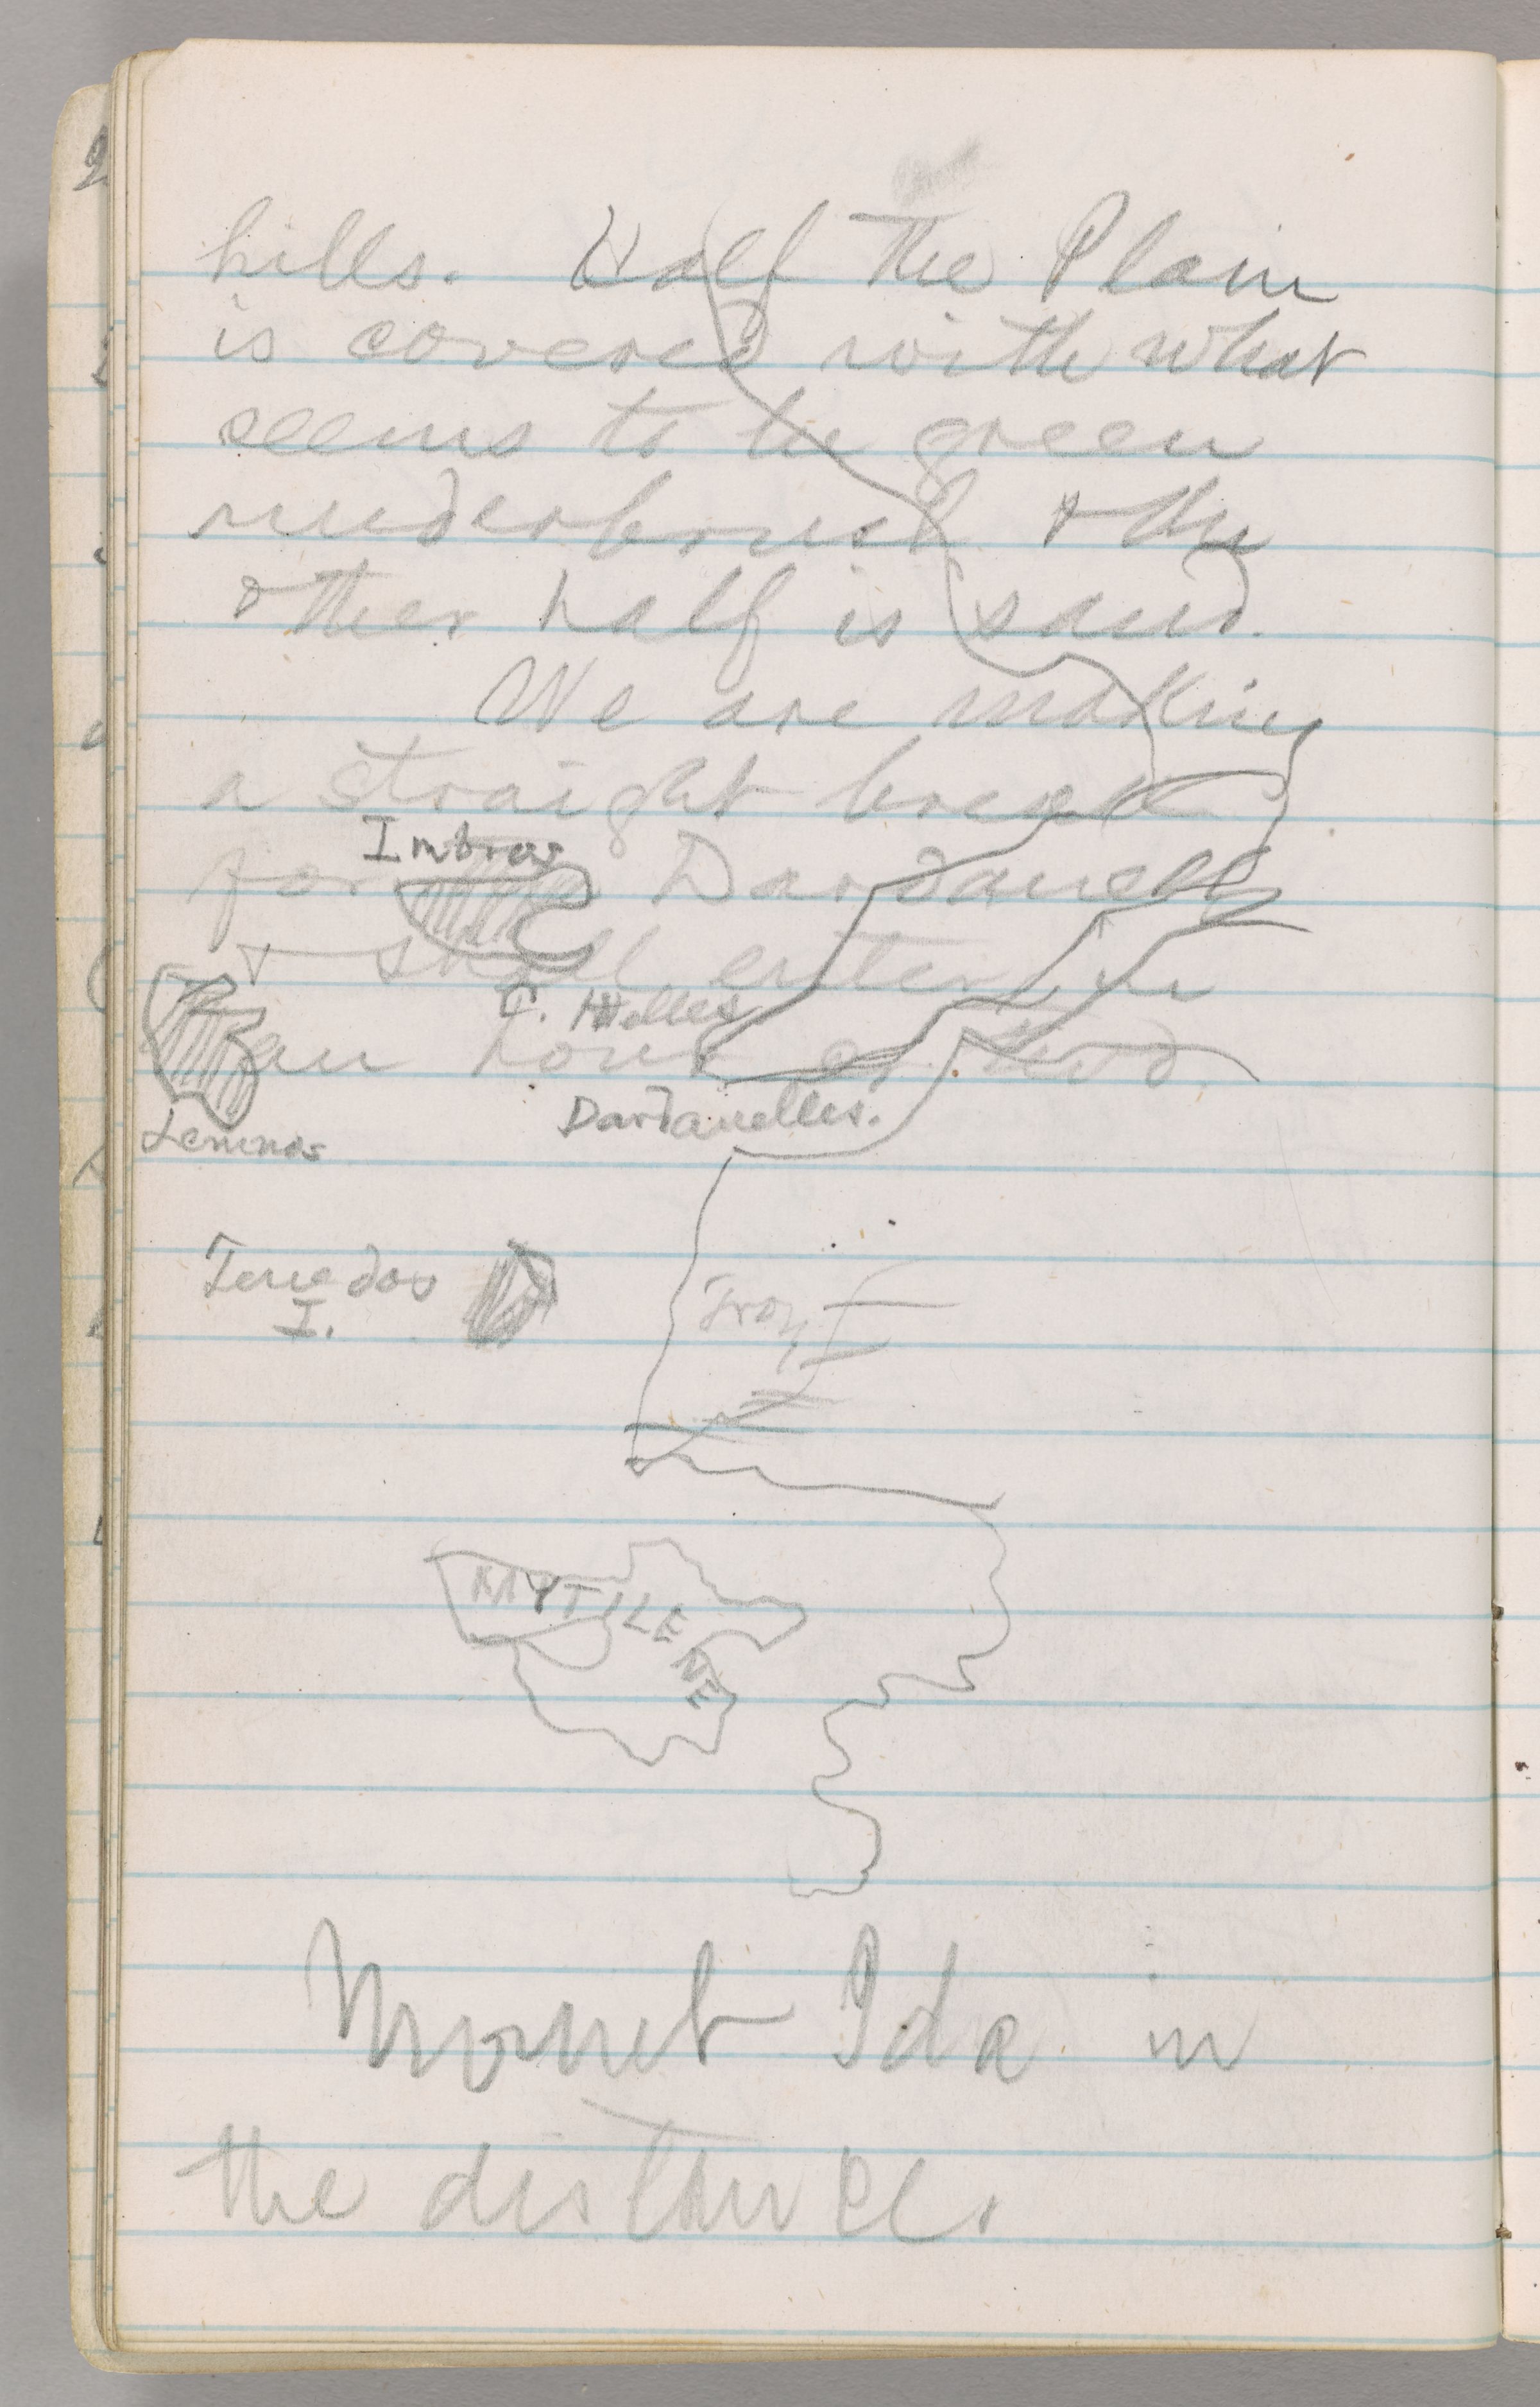 hills. Half the Plain
is covered with what
seems to be green
underbrush & the
other half is sand.
We are making
a straight break
for Dardanelles
& shall enter in
an hour or two.
Imbros
C. Helles
Lemnos
Dardanelles.
Tenedos
I.
Troy
MYTILENE
Mount Ida in
the distance.